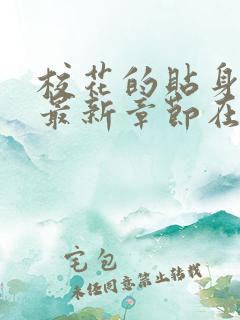 校花的贴身
最新章节在
宅包
未经同意禁止转载